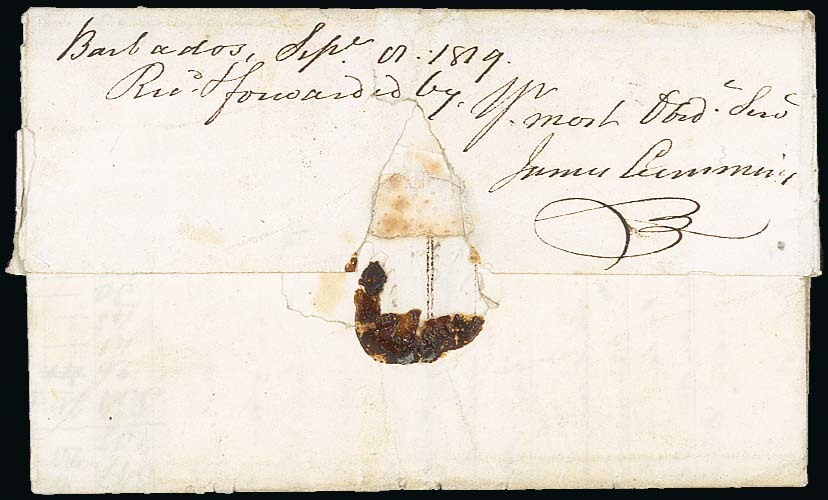 Barbados, Sepr. 8. 1819.
Recd. & forwarded by, Yr
most Obedt. Servt
James Cumming